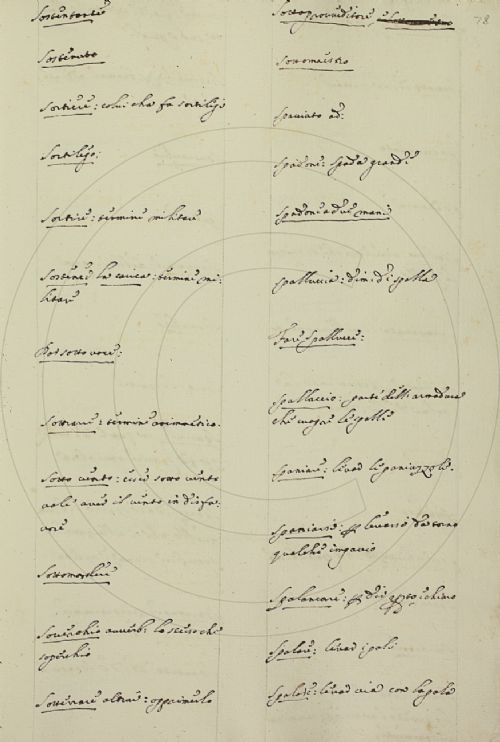 Sostentare
Sostenuto
Sortiere: colui che fa sortilegi
Sortilegio:
Sortire: termine militare
Sostenere la carica: termine mi-
litare
sotto voce:
Sottrare: termine aritmetico.
Sotto vento: esser sotto vento
vale aver il vento in disfa-
vore
Soverchio avverb: lo stesso che
soperchio
Sottrare altrui:
78
Sottoproveditore,
Sottomaestro
Spaciato ad:
Spadone: Spada grande
Spadone a due mani
Spalluccia: dim: di spalla
Fare Spallucce:
Spallaccio: parte dell'armadura
che cuopre le spalle
Spaniare: levar le paniuzzole.
Spaniarsi: levarsi da torno
qualche impaccio
Spalancare:
Spalare: levar i pali
Spalare: levar via con la pala